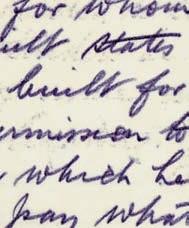 for whom
uilt states
built for
ermission to
which he
pay what